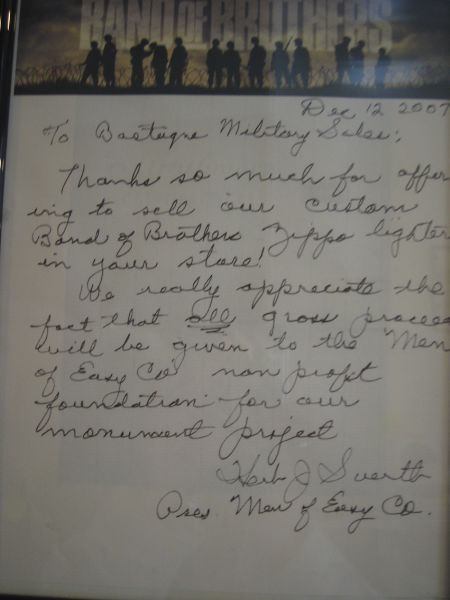 BAND OF BROTHERS
Dec 12 2007
To Bastogne Military Sales:
Thanks so much for offer
ing to sell our custom
Band of Brothers Zippo lighter
in your store!
We really appreciate the
fact that all gross procee
will be given to the "Men
of Easy Co" non profit
foundation for our
monument project
Herb J Suerth
Pres. "Men of Easy Co.